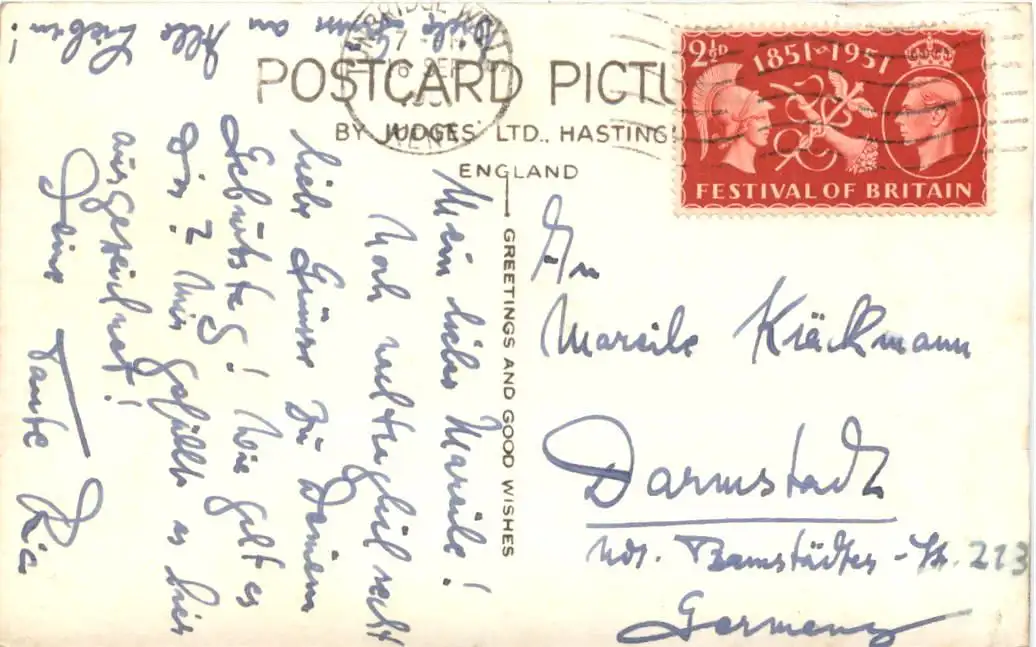 POSTCARD PICTU
BY JUDGES' LTD., HASTING
ENGLAND
GREETINGS AND GOOD WISHES
2½D
1851-1951
FESTIVAL OF BRITAIN
BRIDGE
SEP
KENT
Mein liebes Mareile!
Noch nachträglich recht
liebe Grüsse zu Deinem
Geburtstag! Wie geht es
Dir? Mir gefällt es hier
ausgezeichnet!
Deine Tante Ria
an Alle Lieben!
An
Mareile Kräckmann
Darmstadt
Germany
213